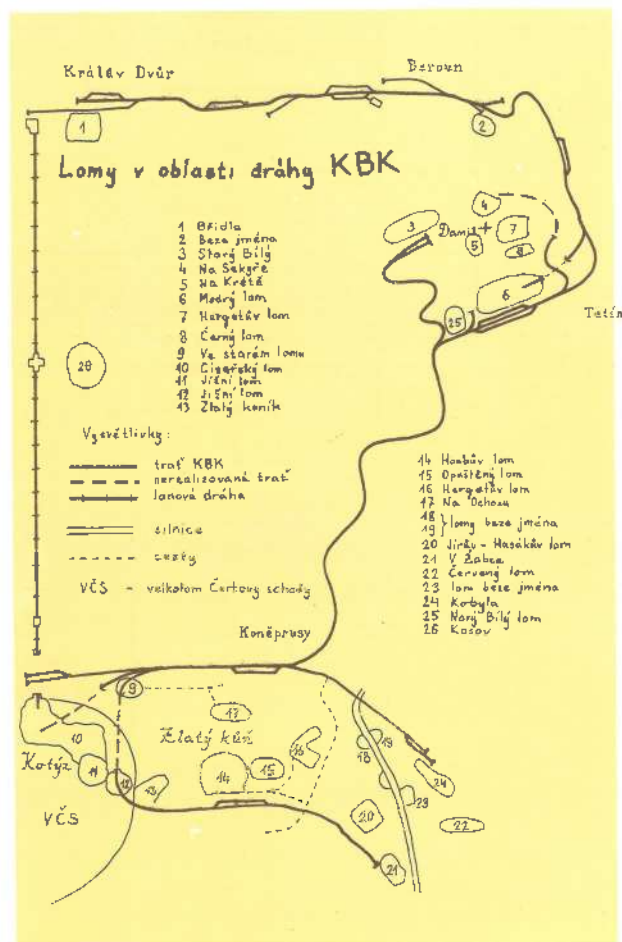 Králův Dvůr
Beroun
1
2
Lomy v oblasti dráhy KBK
1 Břidla
2 Beze jména
3 Starý Bílý
4 Na Sekyře
5 Na Krétě
6 Modrý lom
7 Hergetův lom
8 Černý lom
9 Ve starém lomu
10 Císařský lom
11 Jižní lom
12 Jižní lom
13 Zlatý koník
3
4
Damil
5
7
8
6
25
Tetín
28
Vysvětlivky:
trať KBK
nerealizovaná trať
lanová dráha
silnice
cesty
VČS - velkolom Čertovy schody
14 Houbův lom
15 Opuštěný lom
16 Hergetův lom
17 Na Ochozu
18
19 } lomy beze jména
20 Jirův - Hasákův lom
21 V Žabce
22 Červený lom
23 lom beze jména
24 Kobyla
25 Nový Bílý lom
26 Kosov
Koněprusy
9
17
Zlatý kůň
10
Kotýz
11
12
13
14
15
16
18
19
24
23
20
22
21
VČS